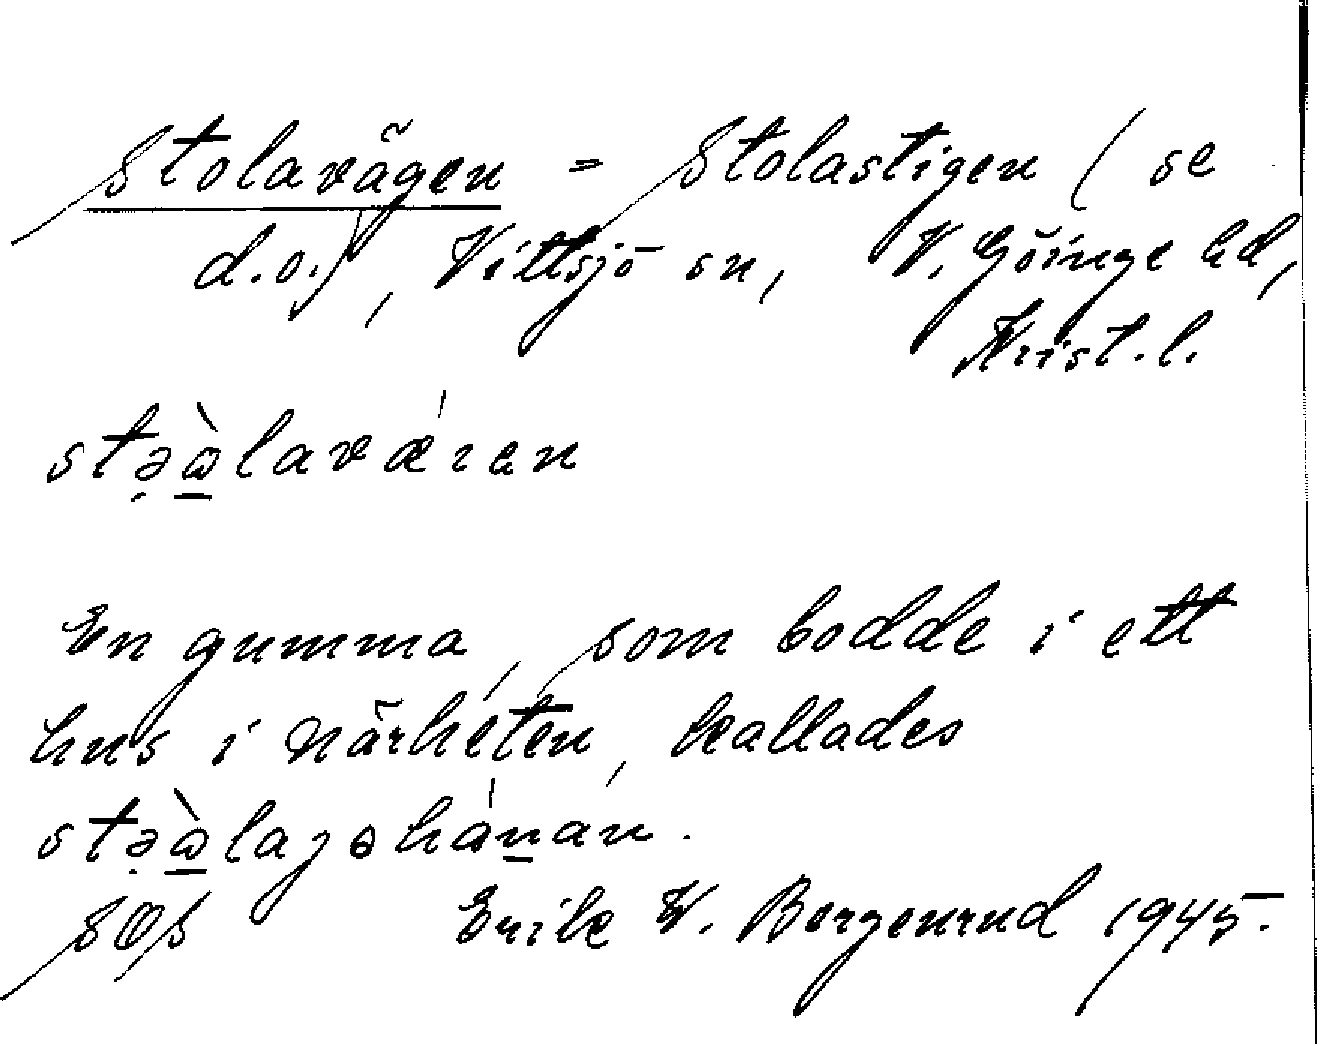 Stolavägen = Stolastigen (se
d.o.), Vittsjö sn, V. Göinge hd,
Krist.l.
stə̣ὰ̱lavǽran
En gumma, som bodde i ett
hus i närheten, kallades
SOS Erik W. Borgenrud 1945.